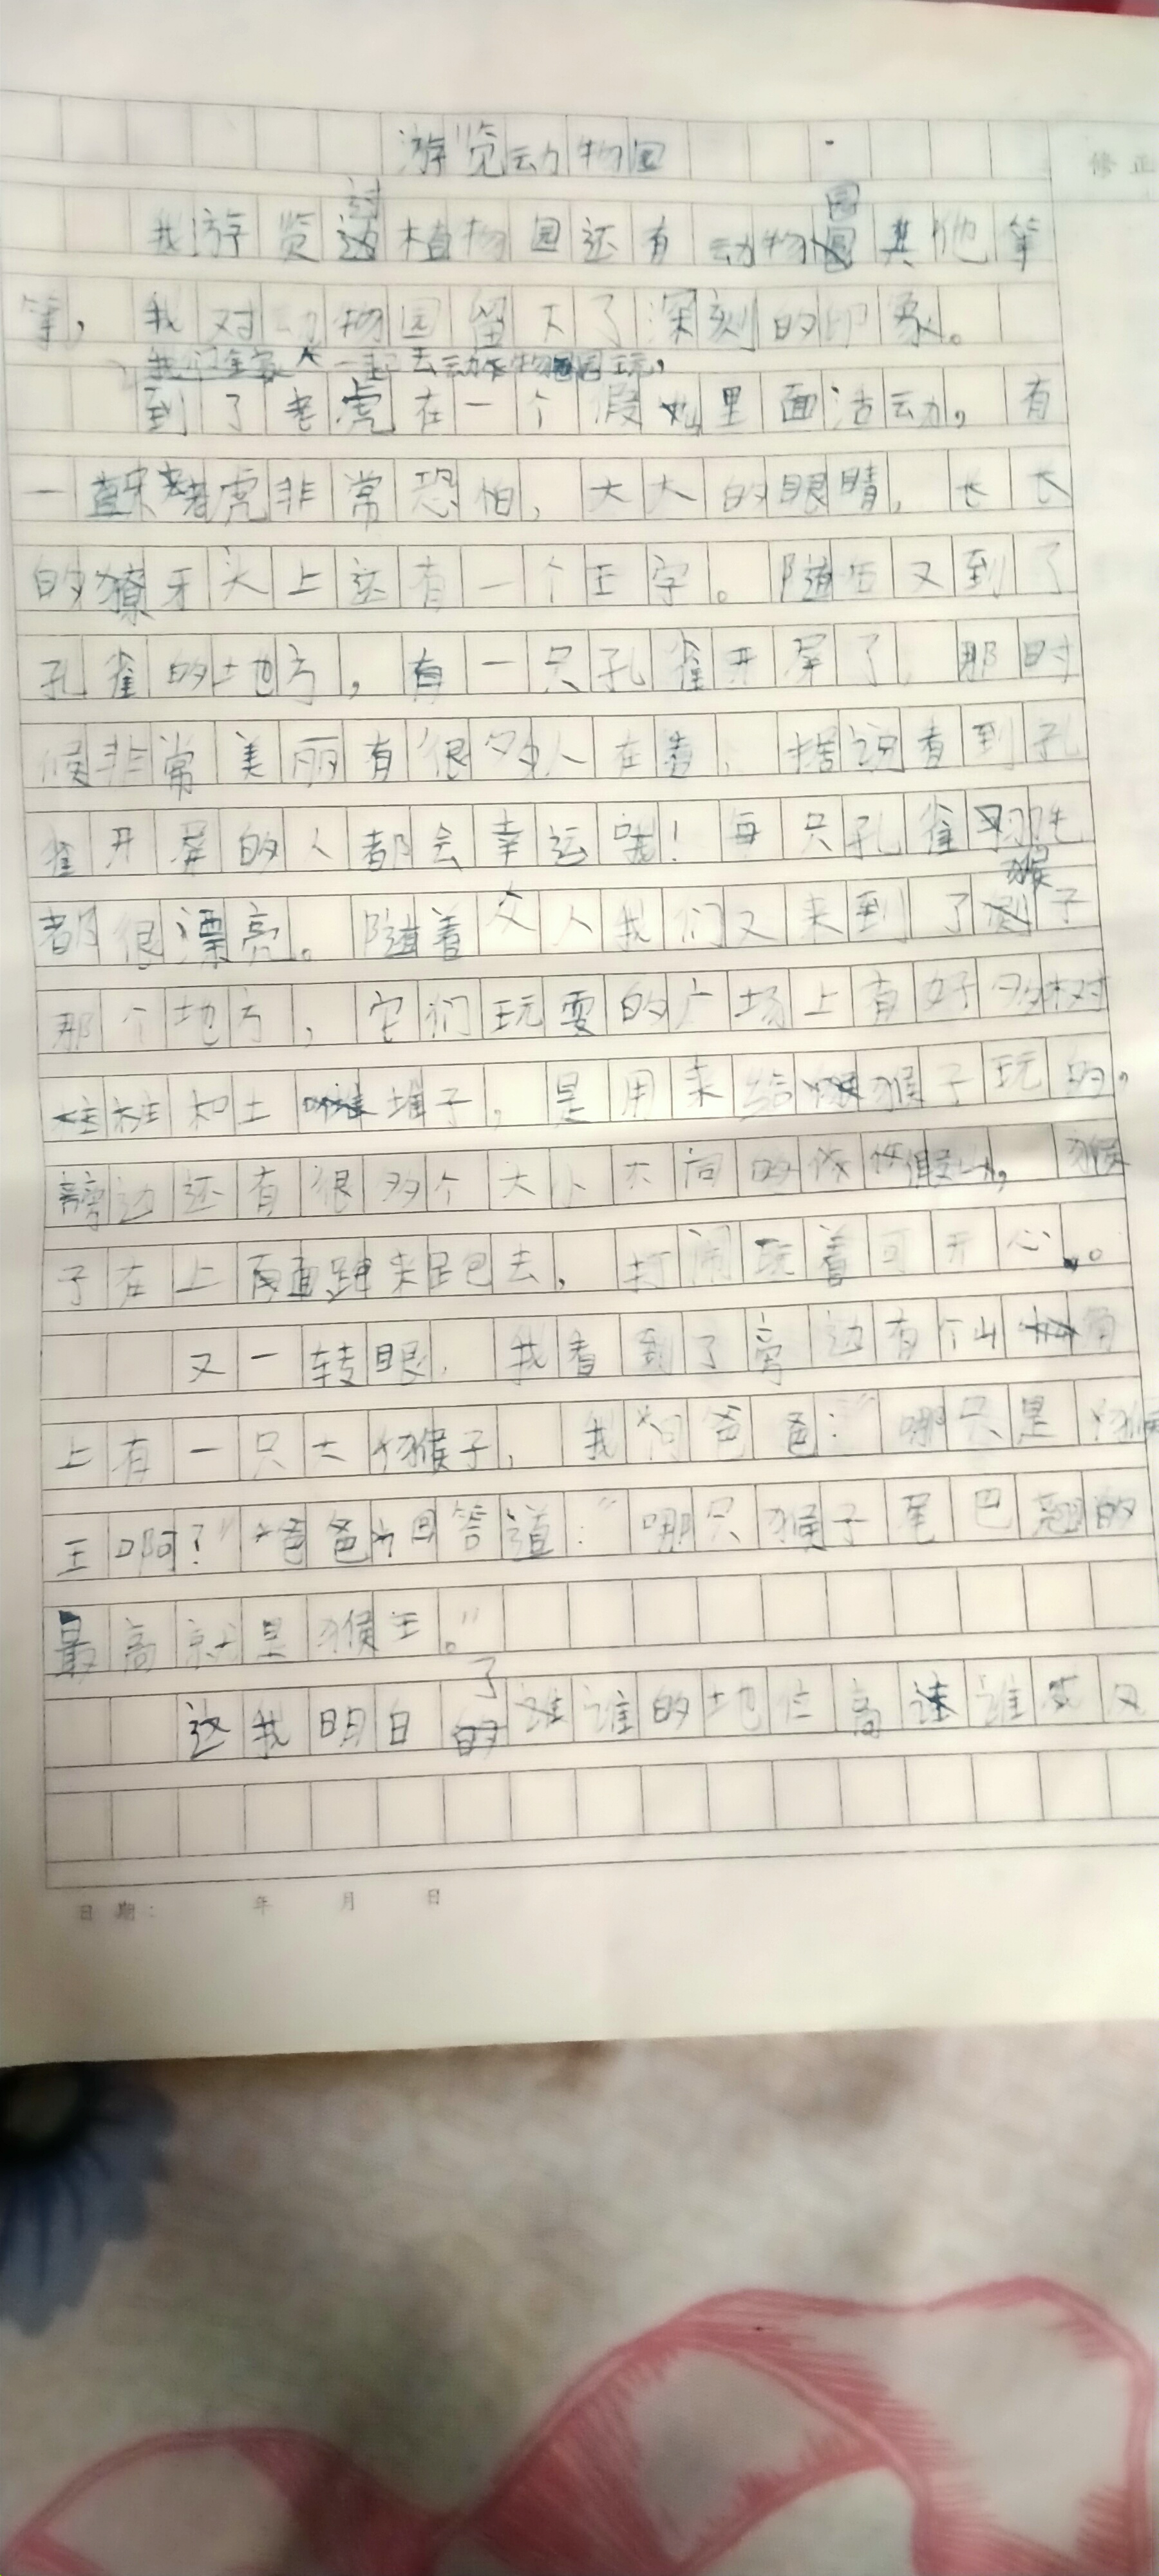 游览动物园
修正
我游览过植物园还有动物园其他等
等，我对动物园留下了深刻的印象。
我们全家人一起去动物园玩，
到了老虎在一个假山里面活动，有
一头老虎非常恐怕，大大的眼睛，长长
的獠牙头上还有一个王字。随后又到了
孔雀的地方，有一只孔雀开屏了，那时
候非常美丽有很多人在看，据说看到孔
雀开屏的人都会幸运哦！每只孔雀羽毛
都很漂亮。随着众人我们又来到了猴子
那个地方，它们玩耍的广场上有好多树
桩和土堆子，是用来给猴子玩的，
旁边还有很多个大小不同的假山，猴
子在上面跑来跑去，打闹玩着可开心。
又一转眼，我看到了旁边有个山
上有一只大猴子，我问爸爸：“哪只是猴
王啊？”爸爸回答道：“哪只猴子尾巴翘的
最高就是猴王。”
这我明白了谁的地位高谁
日期： 年 月 日